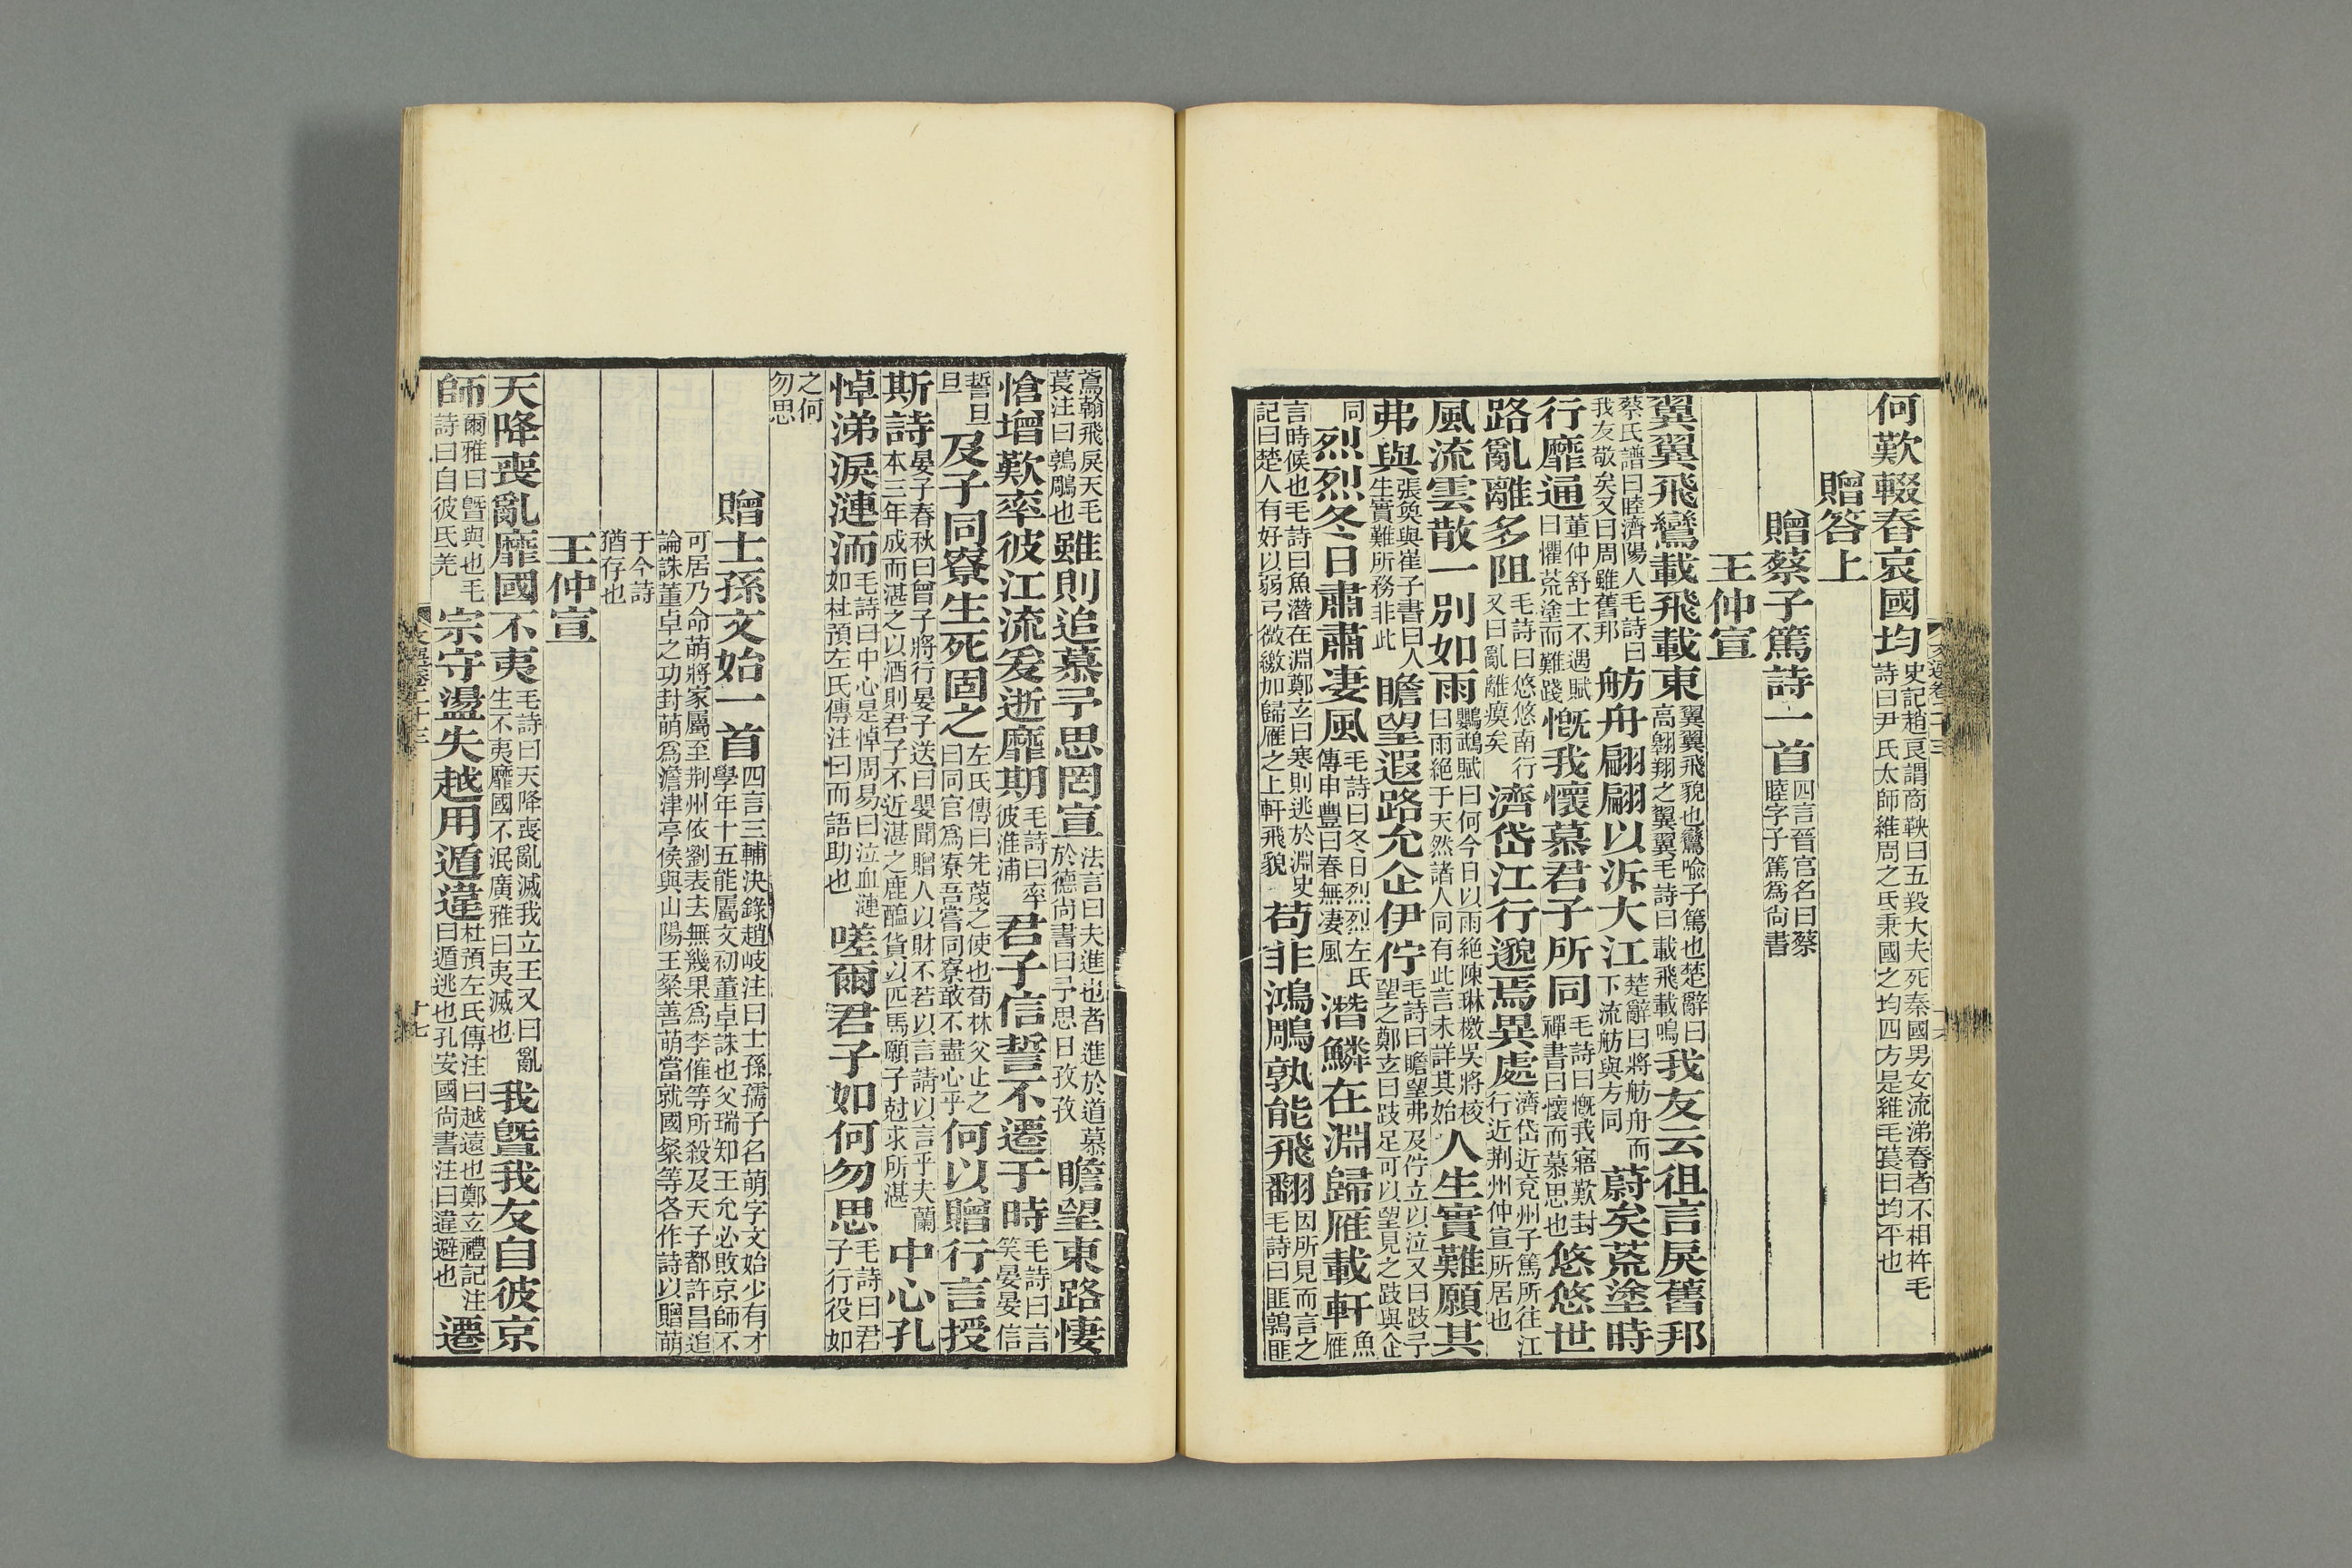 何歎輟舂哀國均史記趙良謂商鞅曰五羖大夫死秦國男女流涕舂者不相杵毛詩曰尹氏太師維周之氐秉國之均四方是維毛萇曰均平也
贈答上
贈蔡子篤詩一首四言晉官名曰蔡睦字子篤爲尙書
王仲宣
翼翼飛鸞載飛載東翼翼飛貌也鸞喩子篤也楚辭曰高翱翔之翼翼毛詩曰載飛載鳴我友云徂言戾舊邦
蔡氏譜曰睦濟陽人毛詩曰我友敬矣又曰周雖舊邦舫舟翩翩以泝大江楚辭曰將舫舟而下流舫與方同蔚矣荒塗時
行靡通董仲舒士不遇賦曰懼荒塗而難踐慨我懷慕君子所同毛詩曰慨我寤歎封禪書曰懷而慕思也悠悠世
路亂離多阻毛詩曰悠悠南行又曰亂離瘼矣濟岱江行邈焉異處濟岱近兗州子篤所往江行近荆州仲宣所居也
風流雲散一別如雨鸚鵡賦曰何今日以雨絶陳琳檄吳將校曰雨絶于天然諸人同有此言未詳其始人生實難願其
弗與張奐與崔子書曰人生實難所務非此瞻望遐路允企伊佇毛詩曰瞻望弗及佇立以泣又曰跂予望之鄭玄曰跂足可以望見之跂與企
同烈烈冬日肅肅凄風毛詩曰冬日烈烈左氏傳申豐曰春無凄風潛鱗在淵歸雁載軒魚雁
言時候也毛詩曰魚潛在淵鄭玄曰寒則逃於淵史記曰楚人有好以弱弓微繳加歸雁之上軒飛貌苟非鴻鵰孰能飛翻因所見而言之毛詩曰匪鶉匪
鳶翰飛戾天毛萇注曰鶉鵰也雖則追慕予思罔宣法言曰夫進也者進於道慕於德尙書曰予思日孜孜瞻望東路悽
愴增歎率彼江流爰逝靡期毛詩曰率彼淮浦君子信誓不遷于時毛詩曰言笑晏晏信
誓旦旦及子同寮生死固之左氏傳曰先蔑之使也荀林父止之曰同官爲寮吾嘗同寮敢不盡心乎何以贈行言授
斯詩晏子春秋曰曾子將行晏子送曰嬰聞贈人以財不若以言請以言乎夫蘭本三年成而湛之以酒則君子不近湛之鹿醢貨以匹馬願子尅求所湛中心孔
悼涕淚漣洏毛詩曰中心是悼周易曰泣血漣如杜預左氏傳注曰而語助也嗟爾君子如何勿思毛詩曰君子行役如
之何勿思
贈士孫文始一首四言三輔決錄趙岐注曰士孫孺子名萌字文始少有才學年十五能屬文初董卓誅也父瑞知王允必敗京師不
可居乃命萌將家屬至荆州依劉表去無幾果爲李傕等所殺及天子都許昌追論誅董卓之功封萌爲澹津亭侯與山陽王粲善萌當就國粲等各作詩以贈萌
于今詩猶存也
王仲宣
天降喪亂靡國不夷毛詩曰天降喪亂滅我立王又曰亂生不夷靡國不泯廣雅曰夷滅也我曁我友自彼京
師爾雅曰曁與也毛詩曰自彼氐羌宗守盪失越用遁違杜預左氏傳注曰越遠也鄭玄禮記注曰遁逃也孔安國尙書注曰違避也遷
十七